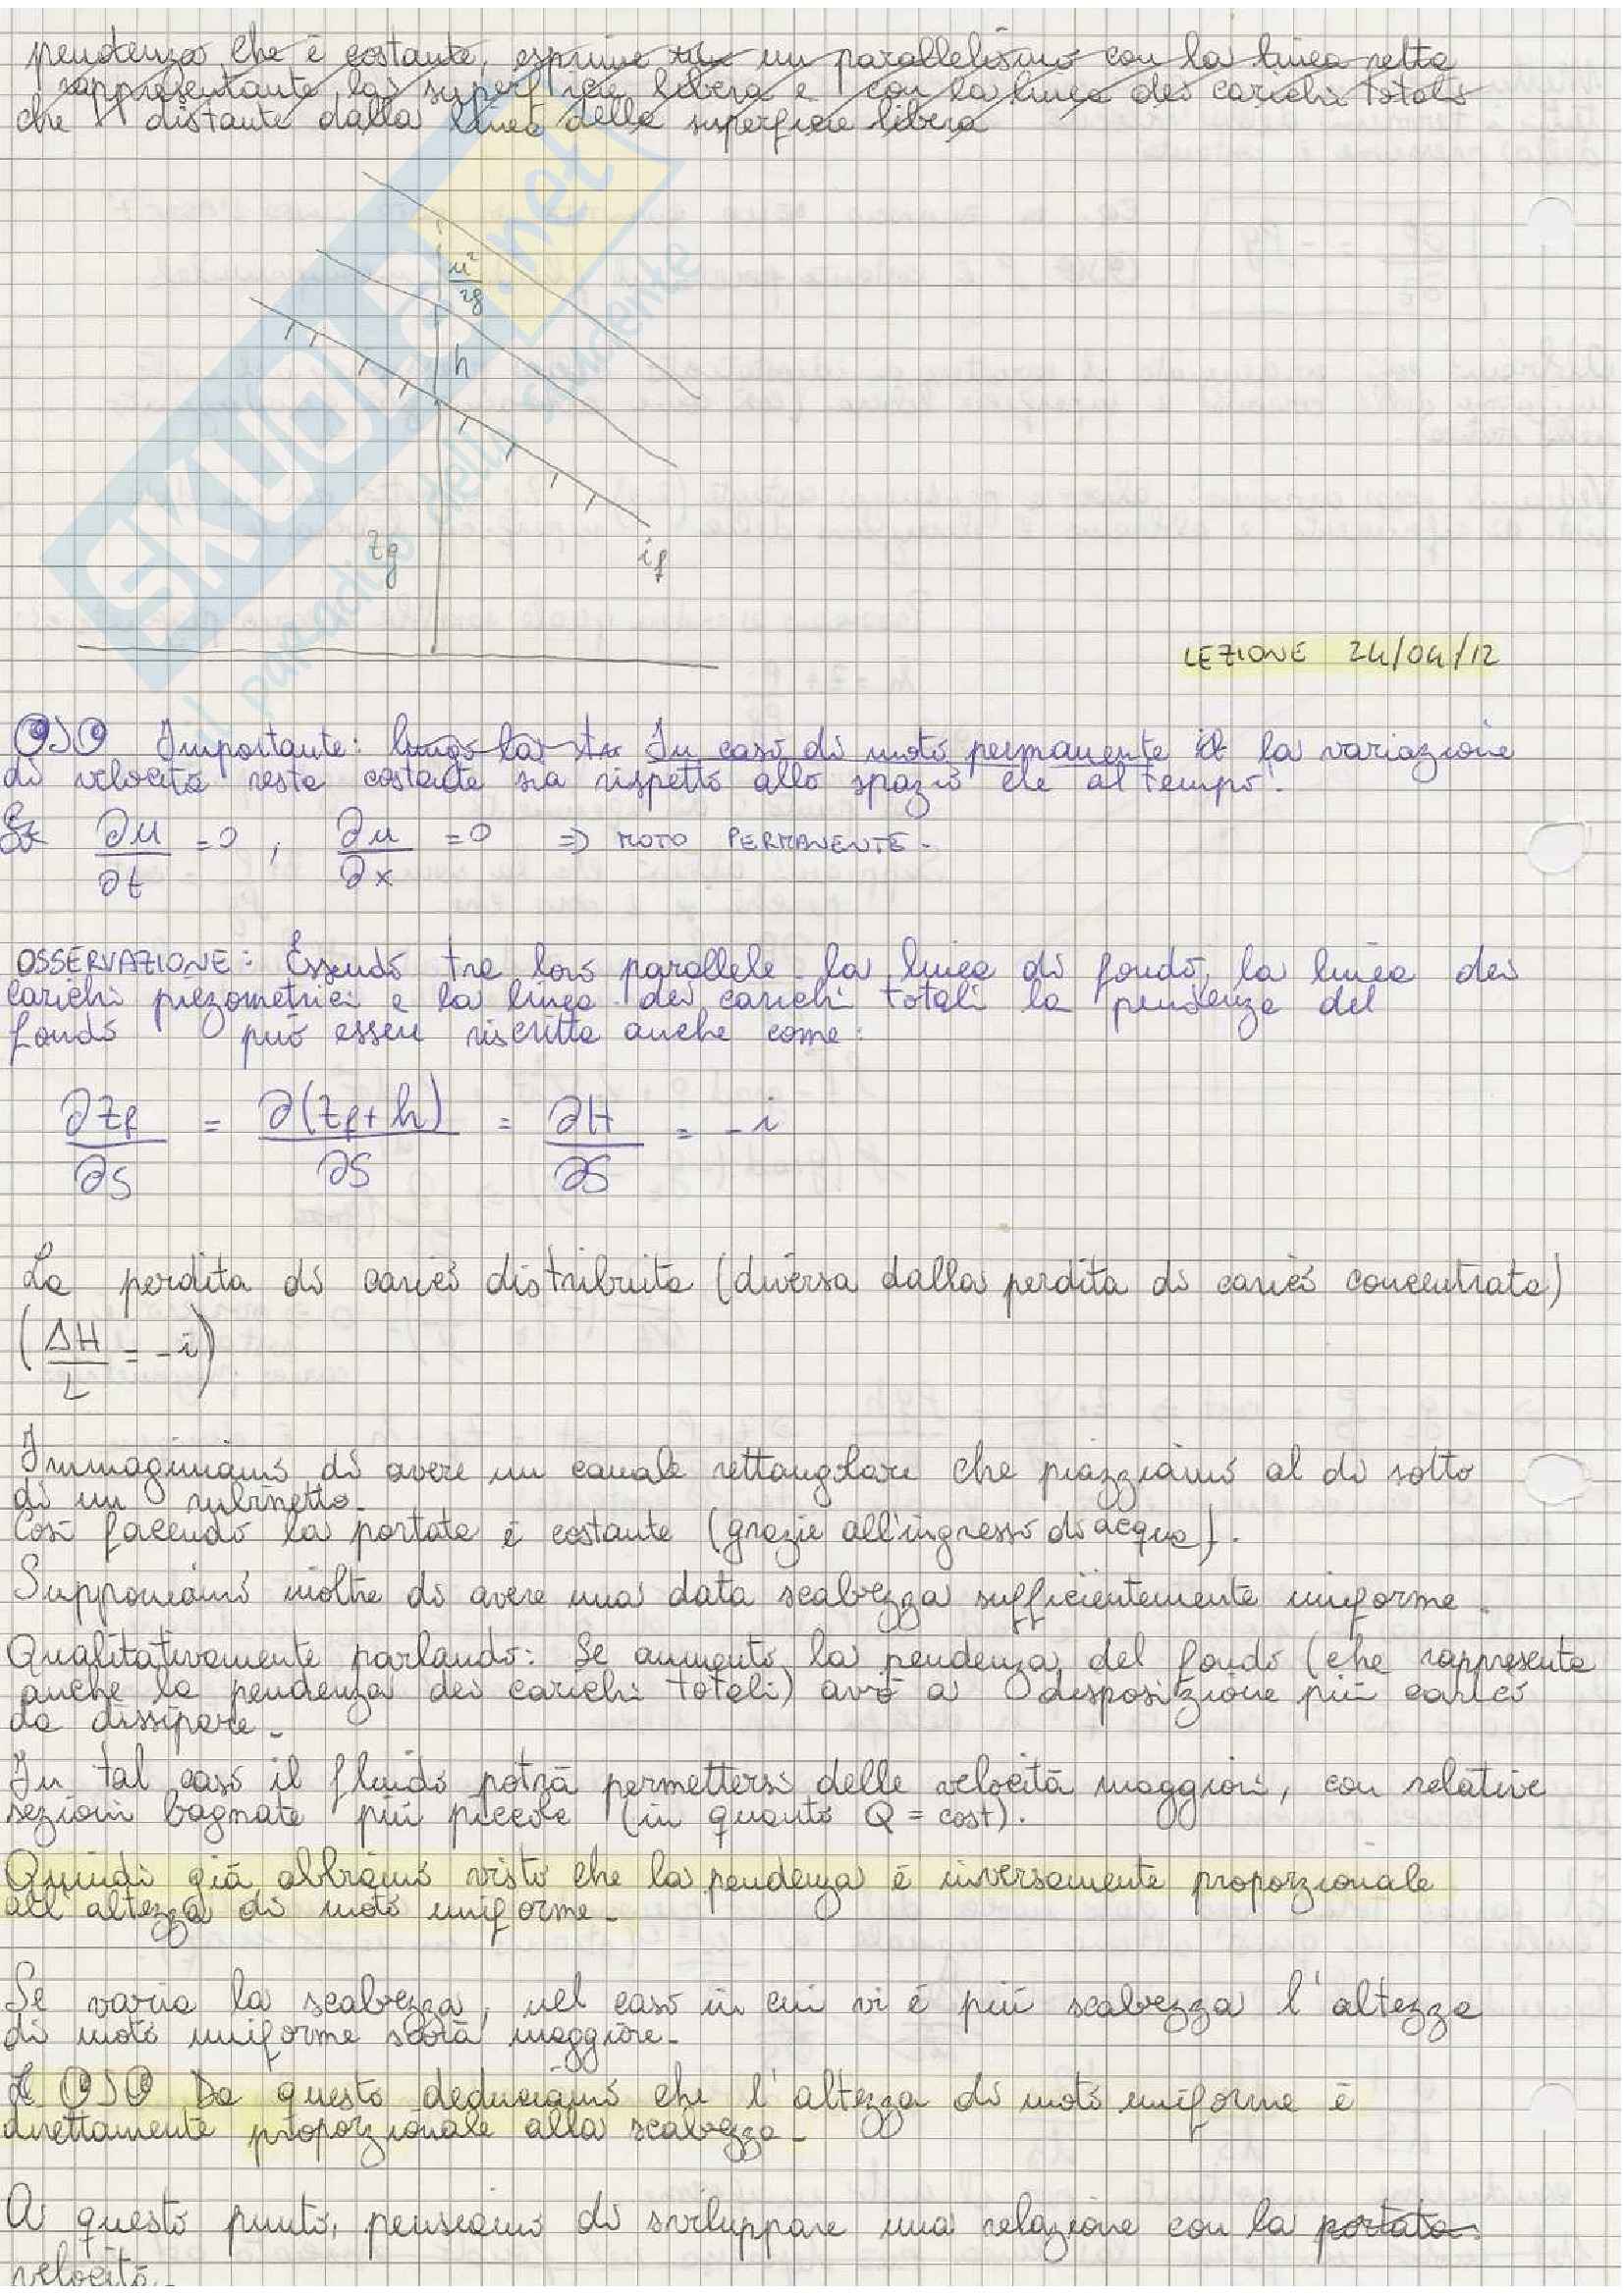 pendenza che è costante, esprime un parallelismo con la linea retta
rappresentante la superficie libera e con la linea dei carichi totali
che distante dalla linea della superficie libera
u²/2g
h
zg
if
SKUOLA.net
il paradiso dello studente
LEZIONE 24/04/12
OJO Importante: In caso di moto permanente la variazione
di velocità resta costante sia rispetto allo spazio che al tempo!
∂u/∂t = 0 , ∂u/∂x = 0 => MOTO PERMANENTE.
OSSERVAZIONE: Essendo tra loro parallele la linea di fondo, la linea dei
carichi piezometrici e la linea dei carichi totali la pendenza del
fondo può essere riscritta anche come:
∂zf/∂s = ∂(zf+h)/∂s = ∂H/∂s = -i
La perdita di carico distribuita (diversa dalla perdita di carico concentrata)
(ΔH/L = -i)
Immaginiamo di avere un canale rettangolare che piazziamo al di sotto
di un rubinetto.
Così facendo la portata è costante (grazie all'ingresso di acqua).
Supponiamo inoltre di avere una data scabrezza sufficientemente uniforme.
Qualitativamente parlando: Se aumento la pendenza del fondo (che rappresenta
anche la pendenza dei carichi totali) avrò a disposizione più carico
da dissipare.
In tal caso il fluido potrà permettersi delle velocità maggiori, con relative
sezioni bagnate più piccole (in quanto Q = cost).
Quindi già abbiamo visto che la pendenza è inversamente proporzionale
all'altezza di moto uniforme.
Se varia la scabrezza, nel caso in cui vi è più scabrezza l'altezza
di moto uniforme sarà maggiore.
OJO Da questo deduciamo che l'altezza di moto uniforme è
direttamente proporzionale alla scabrezza.
A questo punto, pensiamo di sviluppare una relazione con la portata
velocità.